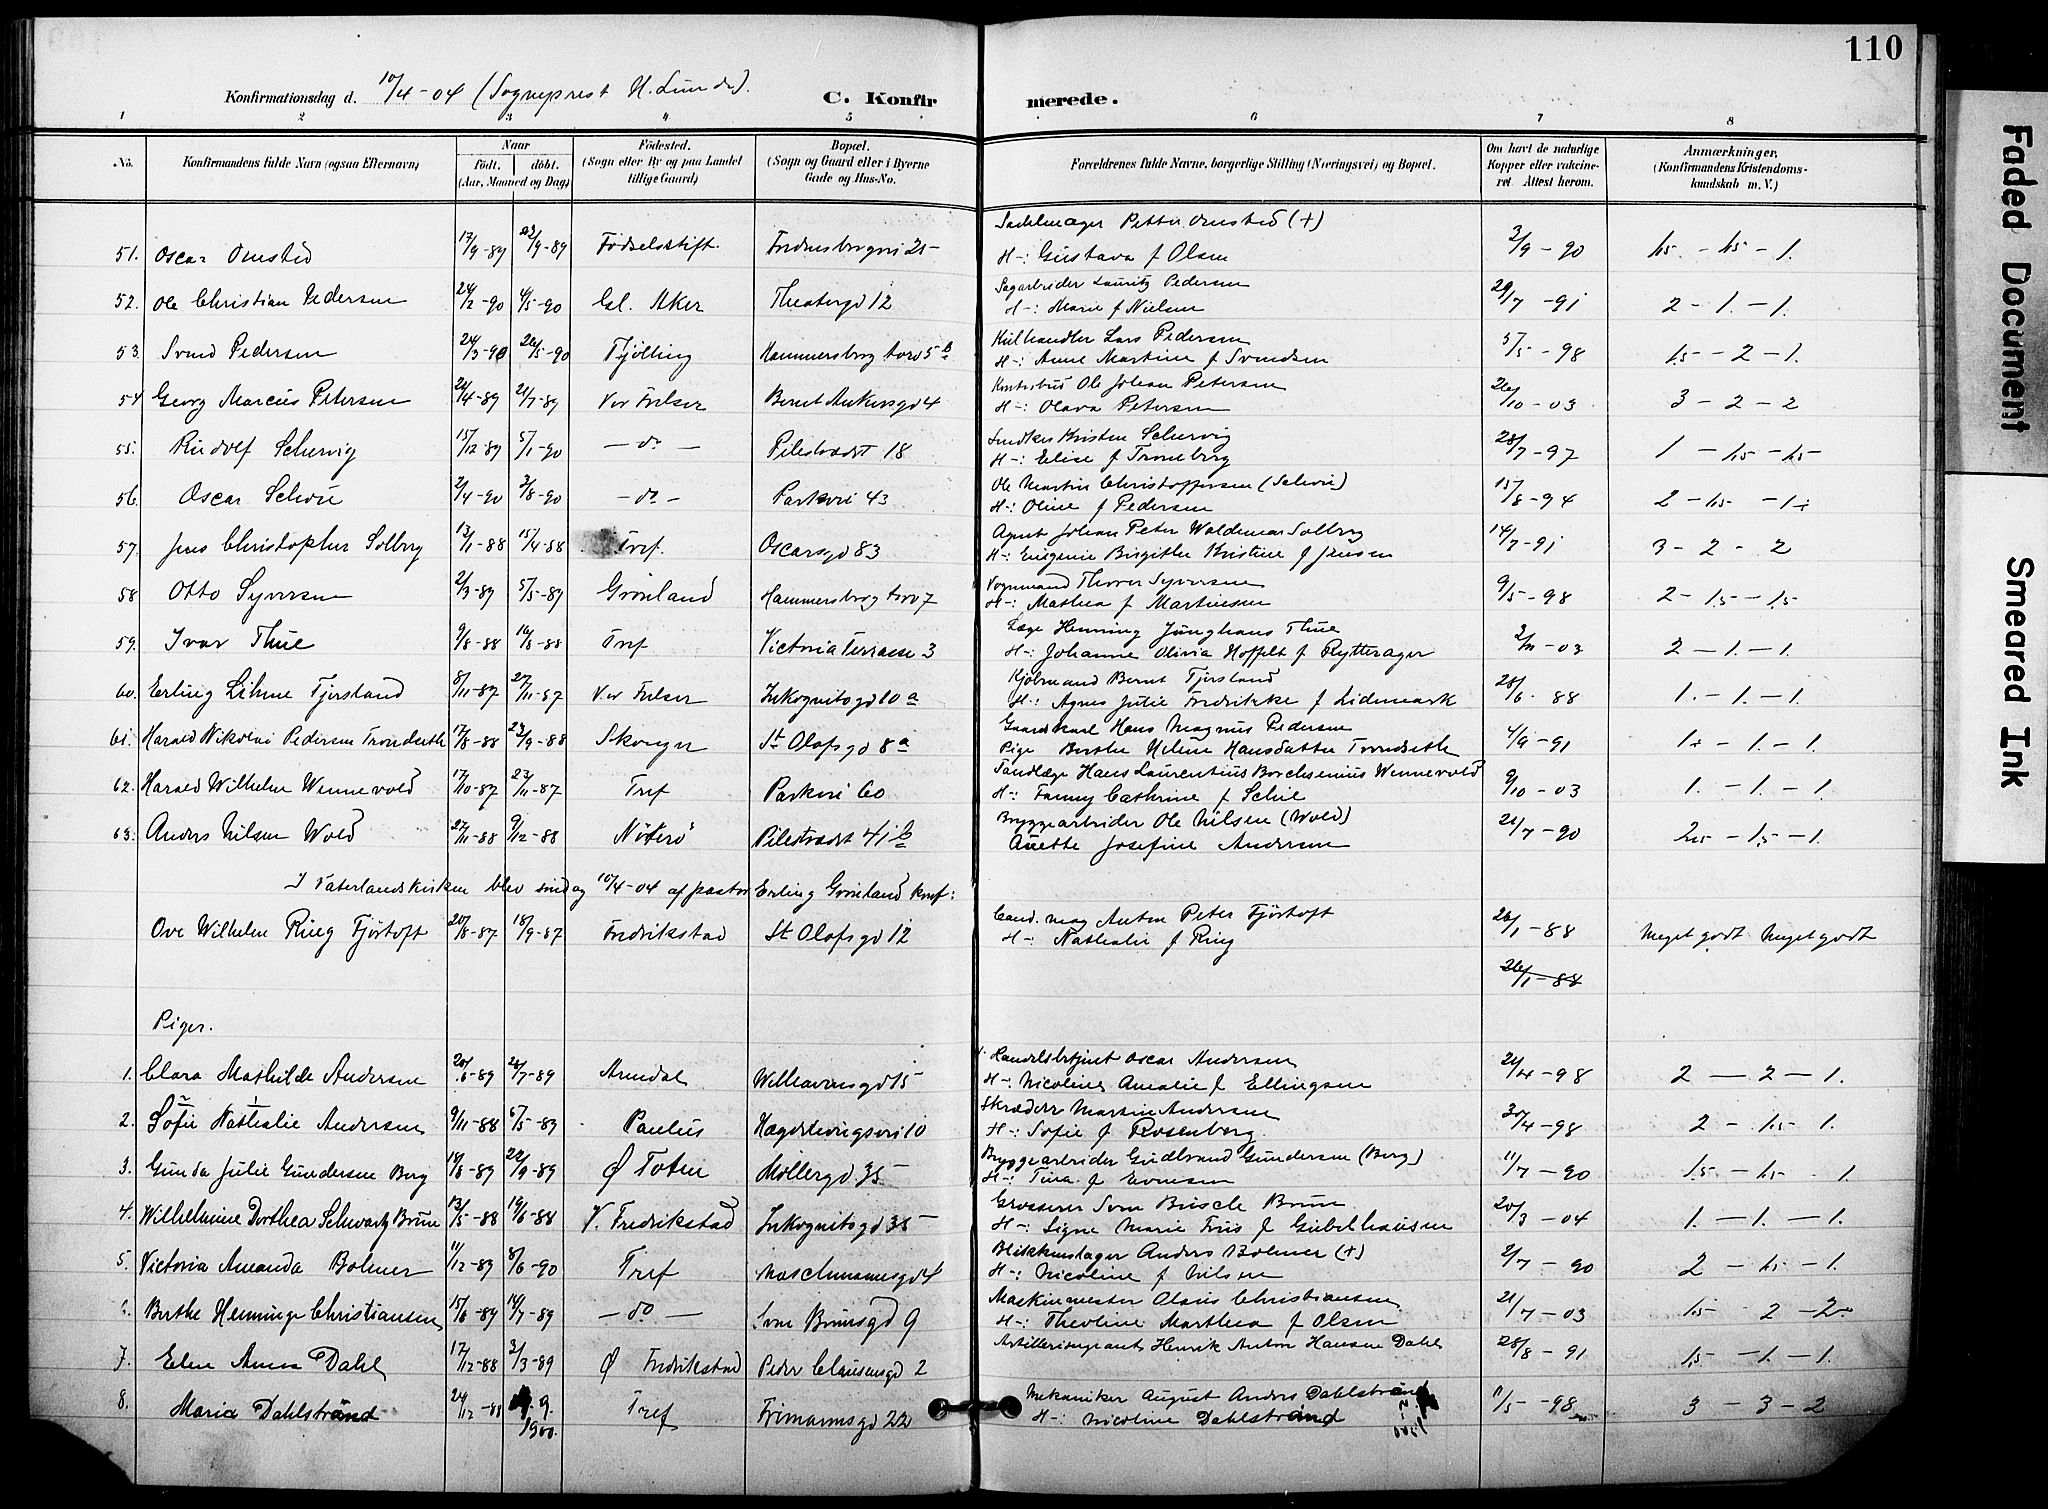 110
Konfirmationsdag d. 10/4-04 (Sogneprest H. Lunde).
C. Konfir merede.
1 2 3 4 5 6 7 8
No. Konfirmandens fulde Navn (ogsaa Efternavn) Naar født. døbt. (Aar, Maaned og Dag) Fødested. (Sogn eller By og paa Landet tillige Gaard) Bopæl. (Sogn og Gaard eller i Byerne Gade og Hus-No. Forældrenes fulde Navne, borgerlige Stilling (Næringsvei) og Bopæl. Om havt de naturlige Kopper eller vakcineret. Attest herom. Anmærkninger. (Konfirmandens Kristendomskundskab m. V.)
51. Oscar Omsted 17/9-89 22/9-89 Fødselsstift. Fredensborgvei 25 Petter Omsted (+)
H-: Gustava f Olsen 3/9-90 1.5 - 1.5 - 1.
52. Ole Christian Pedersen 24/2-90 4/5-90 Gl. Aker Theatergd 12 Sagarbeider Lauritz Pedersen
H-: Marie f Nielsen 29/7-91 2 - 1. - 1.
53. Svend Pedersen 24/3-90 26/5-90 Tjølling Hammersborg torv 5 b Kulhandler Lars Pedersen
H-: Anne Martine f Svendsen 5/5-98 1.5 - 2 - 1.
54 Georg Marcus Petersen 24/4-89 21/7-89 Vor Frelser Bernt Ankersgd 4 Kontorbud Ole Johan Petersen
H-: Olava Petersen 26/10-03 3 - 2 - 2
55. Rudolf Schervig 15/12-89 5/1-90 - do - Pilestrædet 18 Snedker Kristen Schervig
H-: Elise f Troneberg 28/7-97 1 - 1.5 - 1.5
56. Oscar Schou 2/4-90 3/8-90 - do - Parkvei 43 Ole Martin Christoffersen (Schou)
H-: Oline f Pedersen 15/8-94 2 - 1.5 - 1÷
57. Jens Christopher Solberg 13/1-88 15/4-88 Tref. Oscarsgd 83 Agent Johan Peter Waldemar Solberg
H-: Eugenie Birgitte Kristine f Jensen 14/7-91 3 - 2 - 2
58 Otto Syversen 2/3-89 5/5-89 Grønland Hammersborg torv 7 Vognmand Thorer Syversen
H-: Mathea f Martinsen 9/5-98 2 - 1.5 - 1.5
59. Ivar Thue 9/8-88 16/8-88 Tref Victoria Terrasse 3 Læge Henning Junghans Thue
H-: Johanne Olivia Hoffelt f Rytterager 3/11-03 2 - 1. - 1.
60. Erling Lihme Tjersland 8/11-87 27/11-87 Vor Frelser Inkognitogd 10 a Kjøbmand Bernt Tjersland
H-: Agnes Julie Fredrikke f Lidemark 28/6-88 1. - 1. - 1.
61. Harald Nikolai Pedersen Trondseth 17/8-88 23/9-88 Skoger St Olafsgd 8a Gaardskarl Hans Magnus Pedersen
Pige Berthe Helene Hansdatter Trondseth 4/9-91 1÷ - 1. - 1
62. Harald Wilhelm Wennevold 17/10-87 27/11-87 Tref Parkvei 60 Tandlæge Hans Laurentius Borchsenius Wennevold
H-: Fanny Cathrine f Schie 9/10-03 1. - 1. - 1.
63. Anders Nilsen Wold 27/11-88 9/12-88 Nøterø Pilestrædet 41 b Bryggearbeider Ole Nilsen (Wold)
Anette Josefine Andersen 21/7-90 2.5 - 1.5 - 1.
I Vaterlandskirken blev søndag 10/4-04 af pastor Erling Grønland konf:
Ove Wilhelm Ring Fjørtoft 20/8-87 18/9-87 Fredrikstad St Olafsgd 12 Cand. mag Anton Peter Fjørtoft
H-: Nathalie f Ring 26/1-88 Meget godt Meget godt
26/1-88
Piger.
1. Clara Mathilde Andersen 20/6-89 26/7-89 Arendal Welhavensgd 15 Handelsbetjent Oscar Andersen
H-: Nicoline Amalie f Ellingsen 24/4-98 2 - 2 - 1.
2. Sofie Nathalie Andersen 9/11-88 5/5-89 Paulus Hægdehaugsvei 10 Skrædder Martin Andersen
H-: Sofie f Rosenberg. 30/4-98 2 - 1.5 - 1.
3. Gunda Julie Gundersen Berg 18/6-89 22/9-89 Ø Toten Møllergd. 35 Bryggearbeider Gudbrand Gundersen (Berg)
H-: Tina f Evensen 11/7-90 1.5 - 1.5 - 1.
4. Wilhelmine Dorthea Schwartz Bruun 13/5-88 19/6-88 V. Fredrikstad Inkognitogd 35 Grosserer Sven Busch Brun
H-: Signe Marie Friis f Gubelhausen 20/3-04 1. - 1. - 1.
5. Victoria Amanda Bohmer 11/12-89 8/6-90 Tref Maschmannsgd 4 Blikkenslager Anders Bohmer (+)
H-: Nicoline f Nilsen 2/7-90 2 - 1.5 - 1.
6. Berthe Henninge Christiansen 15/6-89 14/7-89 - do - Sven Brunsgd 9 Maskinmester Olaus Christiansen
H-: Theoline Marthea f Olsen 21/7-03 1.5 2 - 2
7. Ellen Anna Dahl 17/12-88 3/3-89 Ø Fredrikstad Peder Clausensgd 2 Artillerisergeant Henrik Anton Hansen Dahl 28/8-91 1.5 - 1. - 1.
8. Maria Dahlstrand 24/12-88 9. /900. Tref Frimannsgd 22 Mekaniker August Anders Dahlstrand
H-: Nicoline Dahlstrand 11/5-98 3 - 3 - 2
Faded Document
Smeared Ink